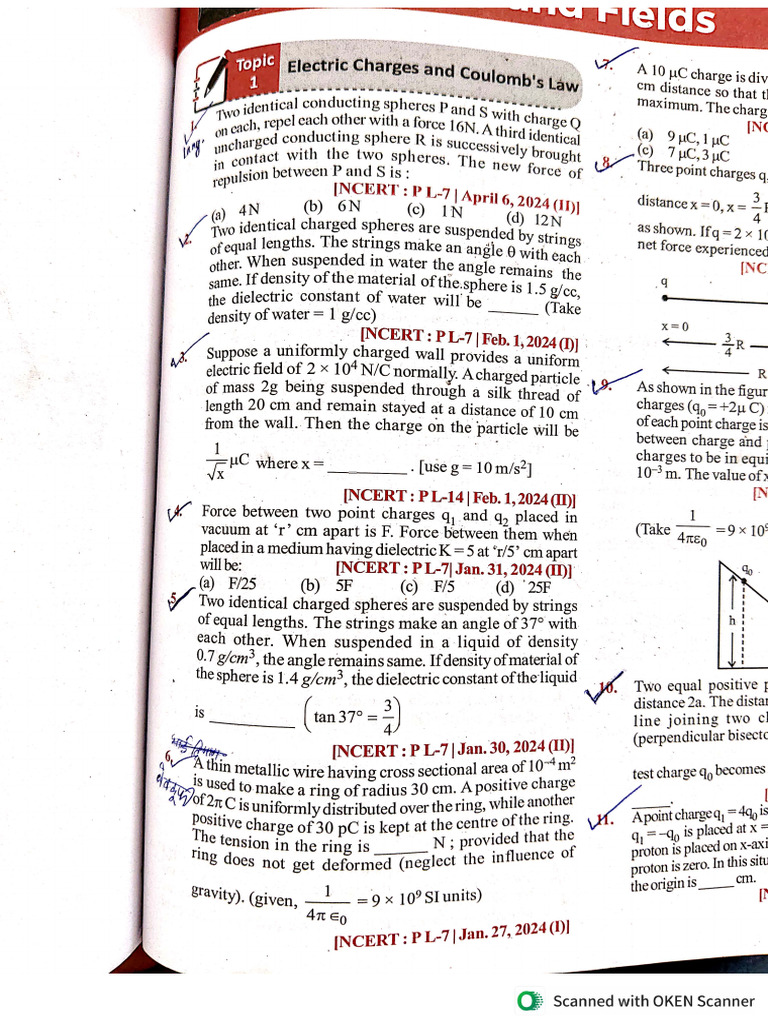 and Fields
Topic
1
Electric Charges and Coulomb's Law
1. Two identical conducting spheres P and S with charge Q
on each, repel each other with a force 16N. A third identical
uncharged conducting sphere R is successively brought
in contact with the two spheres. The new force of
repulsion between P and S is :
[NCERT : P L-7 | April 6, 2024 (II)]
(a) 4 N (b) 6 N (c) 1 N (d) 12 N
2. Two identical charged spheres are suspended by strings
of equal lengths. The strings make an angle θ with each
other. When suspended in water the angle remains the
same. If density of the material of the sphere is 1.5 g/cc,
the dielectric constant of water will be ______ (Take
density of water = 1 g/cc)
[NCERT : P L-7 | Feb. 1, 2024 (I)]
3. Suppose a uniformly charged wall provides a uniform
electric field of 2 × 10⁴ N/C normally. A charged particle
of mass 2g being suspended through a silk thread of
length 20 cm and remain stayed at a distance of 10 cm
from the wall. Then the charge on the particle will be
1/√x μC where x = ________ . [use g = 10 m/s²]
[NCERT : P L-14 | Feb. 1, 2024 (II)]
4. Force between two point charges q₁ and q₂ placed in
vacuum at 'r' cm apart is F. Force between them when
placed in a medium having dielectric K = 5 at 'r/5' cm apart
will be: [NCERT : P L-7| Jan. 31, 2024 (II)]
(a) F/25 (b) 5F (c) F/5 (d) 25F
5. Two identical charged spheres are suspended by strings
of equal lengths. The strings make an angle of 37° with
each other. When suspended in a liquid of density
0.7 g/cm³, the angle remains same. If density of material of
the sphere is 1.4 g/cm³, the dielectric constant of the liquid
is ________ (tan 37° = 3/4)
[NCERT : P L-7 | Jan. 30, 2024 (II)]
6. A thin metallic wire having cross sectional area of 10⁻⁴ m²
is used to make a ring of radius 30 cm. A positive charge
of 2π C is uniformly distributed over the ring, while another
positive charge of 30 pC is kept at the centre of the ring.
The tension in the ring is ______ N ; provided that the
ring does not get deformed (neglect the influence of
gravity). (given, 1/4π ∈₀ = 9 × 10⁹ SI units)
[NCERT : P L-7 | Jan. 27, 2024 (I)]
7. A 10 μC charge is div
cm distance so that t
maximum. The charg
[NC
(a) 9 μC, 1 μC
(c) 7 μC, 3 μC
8. Three point charges q,
distance x = 0, x = 3/4 R
as shown. If q = 2 × 10
net force experienced
[NC
q
x = 0
3/4 R
R
9. As shown in the figur
charges (q₀ = +2μ C)
of each point charge is
between charge and
charges to be in equi
10⁻³ m. The value of x
[N
(Take 1/4πε₀ = 9 × 10⁹
q₀
h
10. Two equal positive p
distance 2a. The distan
line joining two cl
(perpendicular bisecto
test charge q₀ becomes
______.
11. A point charge q₁ = 4q₀ is
q₁ = −q₀ is placed at x =
proton is placed on x-axi
proton is zero. In this situ
the origin is _____ cm.
[N
Scanned with OKEN Scanner